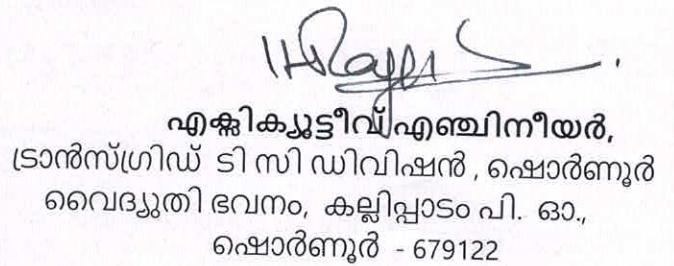 എക്സിക്യൂട്ടീവ് എഞ്ചിനീയർ,
ട്രാൻസ്ഗ്രിഡ് ടി സി ഡിവിഷൻ, ഷൊർണൂർ
വൈദ്യുതി ഭവനം, കല്ലിപ്പാടം പി. ഓ.,
ഷൊർണൂർ - 679122